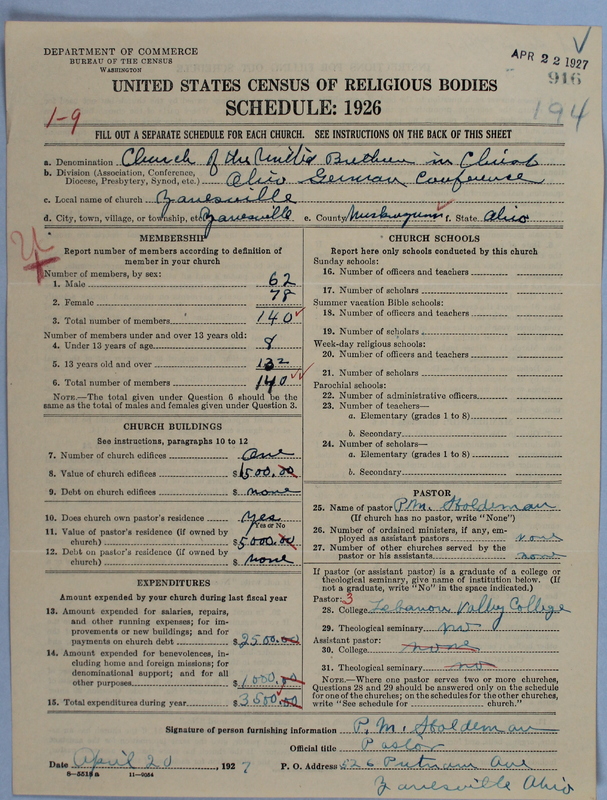 DEPARTMENT OF COMMERCE
BUREAU OF THE CENSUS
WASHINGTON
APR 22 1927
916
UNITED STATES CENSUS OF RELIGIOUS BODIES
SCHEDULE: 1926
1-9
194
FILL OUT A SEPARATE SCHEDULE FOR EACH CHURCH. SEE INSTRUCTIONS ON THE BACK OF THIS SHEET
a. Denomination Church of the United Brethren in Christ
b. Division (Association, Conference, Diocese, Presbytery, Synod, etc.) Ohio German Conference
c. Local name of church Zanesville
d. City, town, village, or township, etc. Zanesville e. County Muskingum f. State Ohio
MEMBERSHIP
Report number of members according to definition of
member in your church
Number of members, by sex:
1. Male 62
2. Female 78
3. Total number of members 140
Number of members under and over 13 years old:
4. Under 13 years of age 8
5. 13 years old and over 132
6. Total number of members 140
NOTE.—The total given under Question 6 should be
same as the total of males and females given under Question 3.
CHURCH BUILDINGS
See instructions, paragraphs 10 to 12
7. Number of church edifices One
8. Value of church edifices $ 1500.00
9. Debt on church edifices $ none
10. Does church own pastor's residence Yes
Yes or No
11. Value of pastor's residence (if owned by
church) $ 5000.00
12. Debt on pastor's residence (if owned by
church) $ none
EXPENDITURES
Amount expended by your church during last fiscal year
13. Amount expended for salaries, repairs,
and other running expenses; for im-
provements or new buildings; and for
payments on church debt $ 2500.00
14. Amount expended for benevolences,
including home and foreign missions; for
denominational support; and for all
other purposes $ 1000.00
15. Total expenditures during year $ 3500.00
CHURCH SCHOOLS
Report here only schools conducted by this church
Sunday schools:
16. Number of officers and teachers
17. Number of scholars
Summer vacation Bible schools:
18. Number of officers and teachers
19. Number of scholars
Week-day religious schools:
20. Number of officers and teachers
21. Number of scholars
Parochial schools:
22. Number of administrative officers
23. Number of teachers—
a. Elementary (grades 1 to 8)
b. Secondary
24. Number of scholars—
a. Elementary (grades 1 to 8)
b. Secondary
PASTOR
25. Name of pastor P.M. Holdeman
(If church has no pastor, write "None")
26. Number of ordained ministers, if any, em-
ployed as assistant pastors none
27. Number of other churches served by the
pastor or his assistants none
If pastor (or assistant pastor) is a graduate of a college or
theological seminary, give name of institution below. (If
not a graduate, write "No" in the space indicated.)
Pastor: 3
28. College Lebanon Valley College
29. Theological seminary no
Assistant pastor:
30. College none
31. Theological seminary no
NOTE.—Where one pastor serves two or more churches,
Questions 28 and 29 should be answered only on the schedule
for one of the churches; on the schedules for the other churches,
write "See schedule for church."
Signature of person furnishing information P. M. Holdeman
Official title Pastor
Date April 20, 1927 P. O. Address 526 Putnam Ave
Zanesville Ohio
8—5518a 11—9064